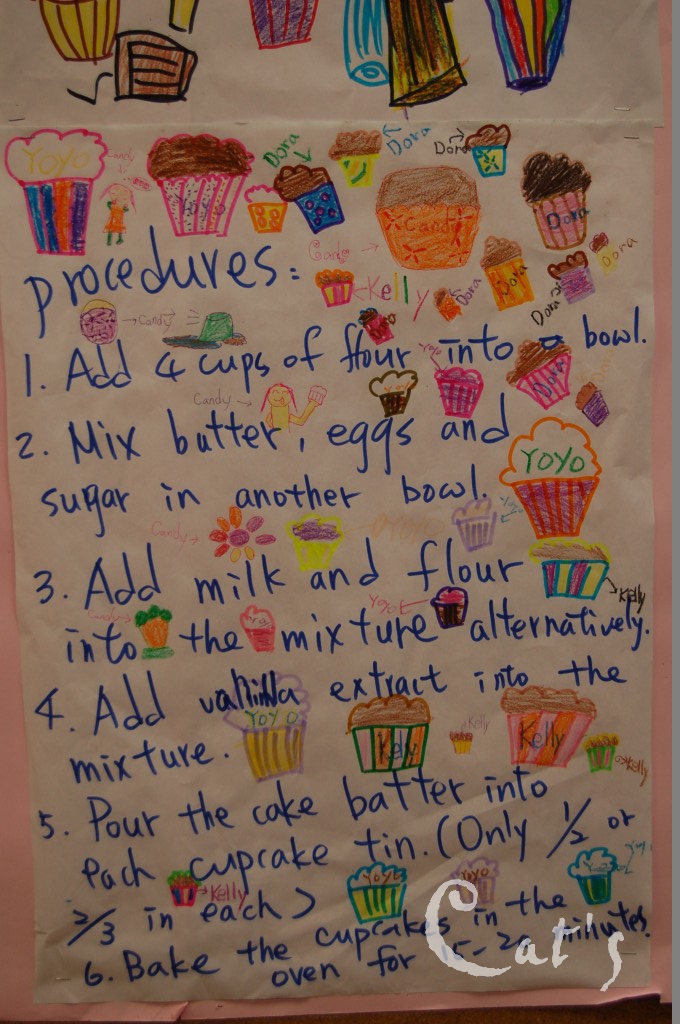 YOYO
Candy
YoYo
Dora
Dora
Dora
Candy
Dora
procedures:
Kelly
Dora
Dora
Dora
Dora
Candy
1. Add 4 cups of flour into a bowl.
YOYO
Dora
Dora
Candy
YOYO
2. Mix butter, eggs and
YOYO
sugar in another bowl.
Candy
3. Add milk and flour
Kelly
into the mixture alternatively.
4. Add vanilla extract into the
YOYO
Kelly
Kelly
Kelly
Kelly
mixture.
5. Pour the cake batter into
each cupcake tin. (Only 1/2 or
Kelly
YOYO
YOYO
2/3 in each)
6. Bake the cupcakes in the
oven for 15-20 minutes.
Cat's